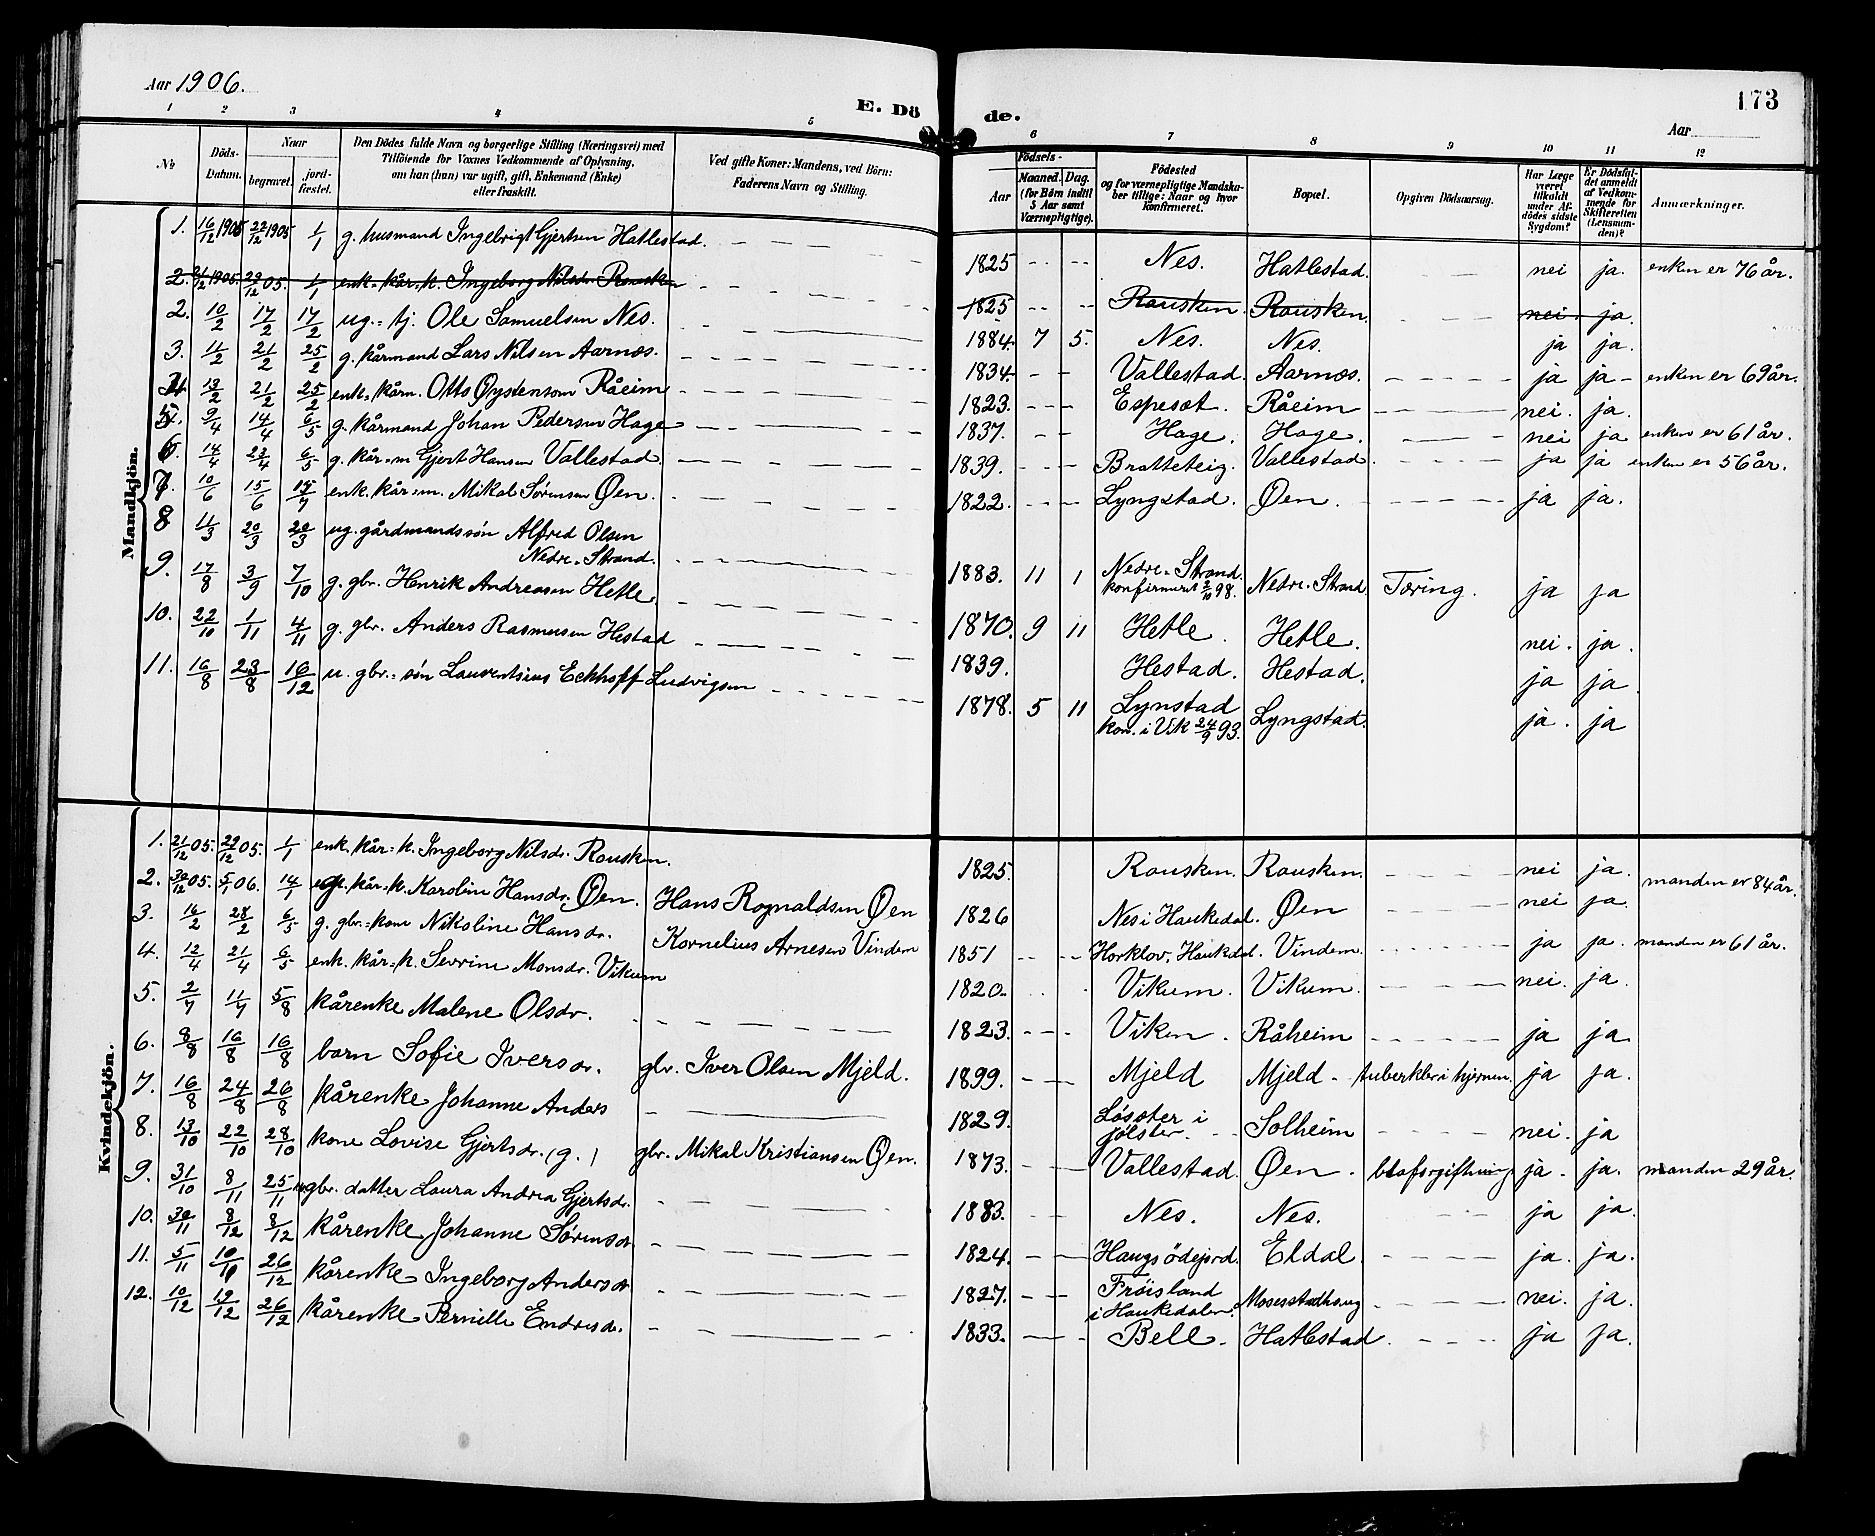 Aar 1906.
E. Dö
de.
173
Aar
1 2 3 4 5
6 7 8 9 10 11 12
No
Döds-Datum.
Naar
begravet.
jord-fæstet.
Den Dödes fulde Navn og borgerlige Stilling (Næringsvei) med
Tilföiende for Voxnes Vedkommende af Oplysning,
om han (hun) var ugift, gift, Enkemand (Enke)
eller fraskilt.
Ved gifte Koner: Mandens, ved Börn:
Faderens Navn og Stilling.
Födsels-
Aar
Maaned. Dag.
(for Börn indtil
5 Aar samt
Værnepligtige).
Födested
og for værnepligtige Mandska-
ber tillige: Naar og hvor
konfirmeret.
Bopæl.
Opgiven Dödsaarsag.
Har Læge
været
tilkaldt
under Af-
dödes sidste
Sygdom?
Er Dödsfal-
det anmeldt
af Vedkom-
mende for
Skifteretten
(Lensman-
den)?
Anmærkninger.
Mandkjön.
1. 16/12 1905 22/12 1905 1/1 g. husmand Ingebrigt Gjertsen Hatlestad. 1825 Nes. Hatlestad. nei ja. enken er 76 år.
2. 21/12 1905. 29/12 05. 1/1 enk. kår. k. Ingeborg Nilsdr. Rousken 1825 Rousken Rousken. nei. ja.
2. 10/2 17/2 17/2 ug. tj. Ole Samuelsen Nes. 1884. 7 5. Nes. Nes. ja ja.
3. 11/2 21/2 25/2 g. kårmand Lars Nilsen Aarnæs. 1834. Vallestad. Aarnæs. ja ja enken er 69 år.
4. 13/2 21/2 25/2 enk. kårm. Otto Øystensøn Råeim 1823. Espeset. Råeim nei. ja.
5. 9/4 14/4 6/5 g. kårmand Johan Pedersen Hage 1837. Hage. Hage. nei ja enken er 61 år.
6. 14/4 23/4 6/5 g. kår-m Gjert Hansen Vallestad. 1839. Bratteteig. Vallestad. ja ja enken er 56 år.
7. 10/6 15/6 15/7 enk. kårem. Mikal Sørensen Øen. 1822. Lyngstad. Øen. ja ja.
8 11/3 20/3 20/3 ug. gårdmandssön Alfred Olsen
Nedre-Strand. 1883. 11 1 Nedre-Strand.
konfirmeret 2/10 98. Nedre-Strand Tæring. ja ja
9. 17/8 3/9 7/10 g. gbr. Henrik Andreasen Hetle. 1870. 9 11 Hetle. Hetle. nei. ja.
10. 22/10 1/11 4/11 g. gbr. Anders Rasmusen Hestad 1839. Hestad. Hestad. ja ja.
11. 16/8 23/8 16/12 u. gbr.-sön Laurentsius Eckhoff Ludvigsen 1878. 5 11 Lynstad
kon. i Vik 24/9 93. Lyngstad. ja. ja
Kvindekjön.
1. 21/12 05. 29/12 05. 1/1 enk. kår-k. Ingeborg Nilsdr. Rousken. 1825. Rousken. Rousken. nei ja.
2. 30/12 05. 5/1 06. 14/1 g. kår-k. Karoline Hansdr. Øen. Hans Rognaldsen Øen 1826 Nes i Haukedal. Øen nei ja. manden er 84 år.
3. 16/2 28/2 6/5 g. gbr.-kone Nikoline Hansdr. Kornelius Arnesen Vindem 1851 Horklov, Haukdal. Vindem. ja ja. manden er 61 år.
4. 12/4 21/4 6/5 enk. kår-k. Sevrine Monsdr. Vikum 1820. Vikum. Vikum. nei. ja.
5. 2/7 11/7 5/8 kårenke Malene Olsdr. 1823. Viken. Råheim ja ja.
6. 8/8 16/8 16/8 barn Sofie Iversdr. gbr. Iver Olsen Mjeld. 1899. Mjeld Mjeld tuberkler i hjernen. ja ja.
7. 16/8 24/8 26/8 kårenke Johanne Anders 1829. Løsæter i
Jølster. Solheim nei. ja
8. 13/10 22/10 28/10 kone Lovise Gjertsdr. (g.) gbr. Mikal Kristiansen Øen. 1873. Vallestad. Øen. blofsrgiftning ja. ja. manden 29 år.
9. 31/10 8/11 25/11 gbr. datter Laura Andrea Gjertsdr. 1883. Nes. Nes. ja ja.
10. 30/11 8/12 8/12 kårenke Johanne Sørensdr 1824. Haugs ödejord. Eldal. ja. ja.
11. 5/11 10/11 26/12 kårenke Ingeborg Andersdr 1827. Fröisland
i Haukedalen. Mosesstadhaug nei. ja.
12. 10/12 19/12 26/12 kårenke Pernille Endresdr. 1833. Bell. Hatlestad ja ja.